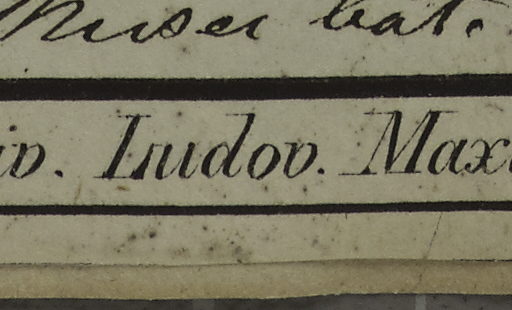 Musei bat.
iv. Ludov. Max.